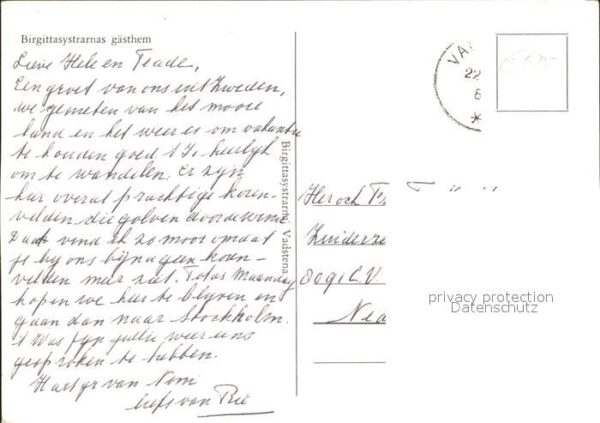 Birgittasystrarnas gästhem
Lieve Hele en Teade,
Een groet van ons uit Zweden,
we genieten van het mooie
land en het weer is om vakantie
te houden goed 't Is heerlijk
om te wandelen. Er zijn
hier overal prachtige koren-
velden die golven door de wind
Dat vind ik zo mooi omdat
je bij ons bijna geen koren-
velden meer ziet. Tot as Maandag
hopen we hier te blijven en
gaan dan naar Stockholm.
't Was fijn jullie weer eens
gesproken te hebben.
Hart gr van Nomi
liefs van
Birgittasystrarna, Vadstena
VA
22
6
*
Her och
Zuiderze
8091 L.V
Ned
privacy protection
Datenschutz